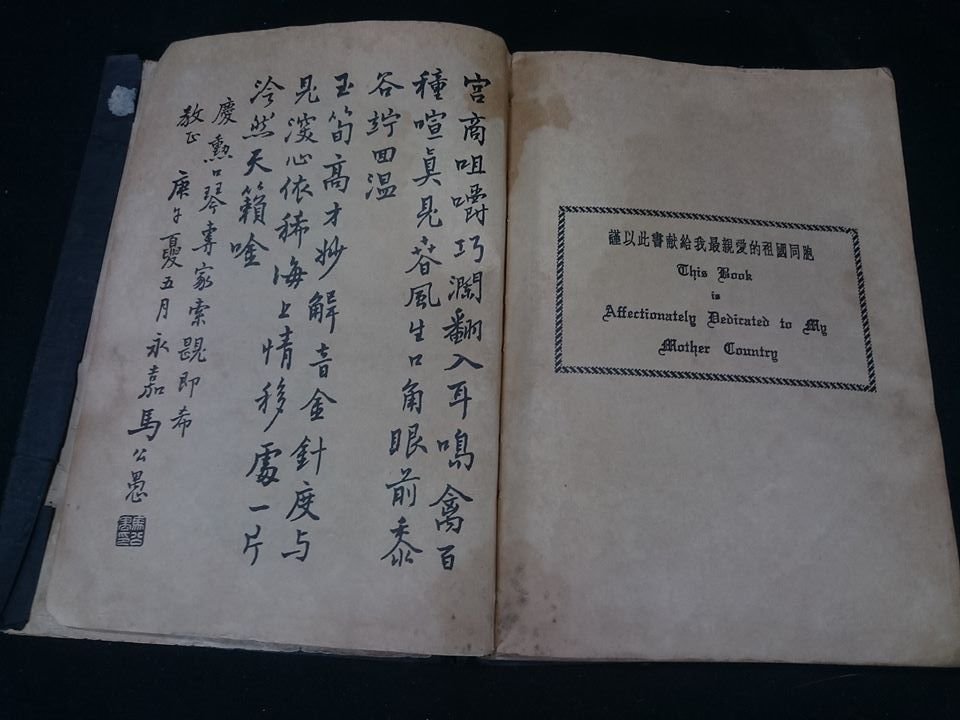 宮商咀嚼巧瀾翻入耳鳴禽百
種喧真見春風生口角眼前黍
谷竚回溫
玉筍高才妙解音金針度与
見深心依稀海上情移處一片
泠然天籟唫
慶勳口琴專家索題即希
教正 庚午夏五月永嘉馬公愚
謹以此書献給我最親愛的祖國同胞
This Book
is
Affectionately Dedicated to My
Mother Country